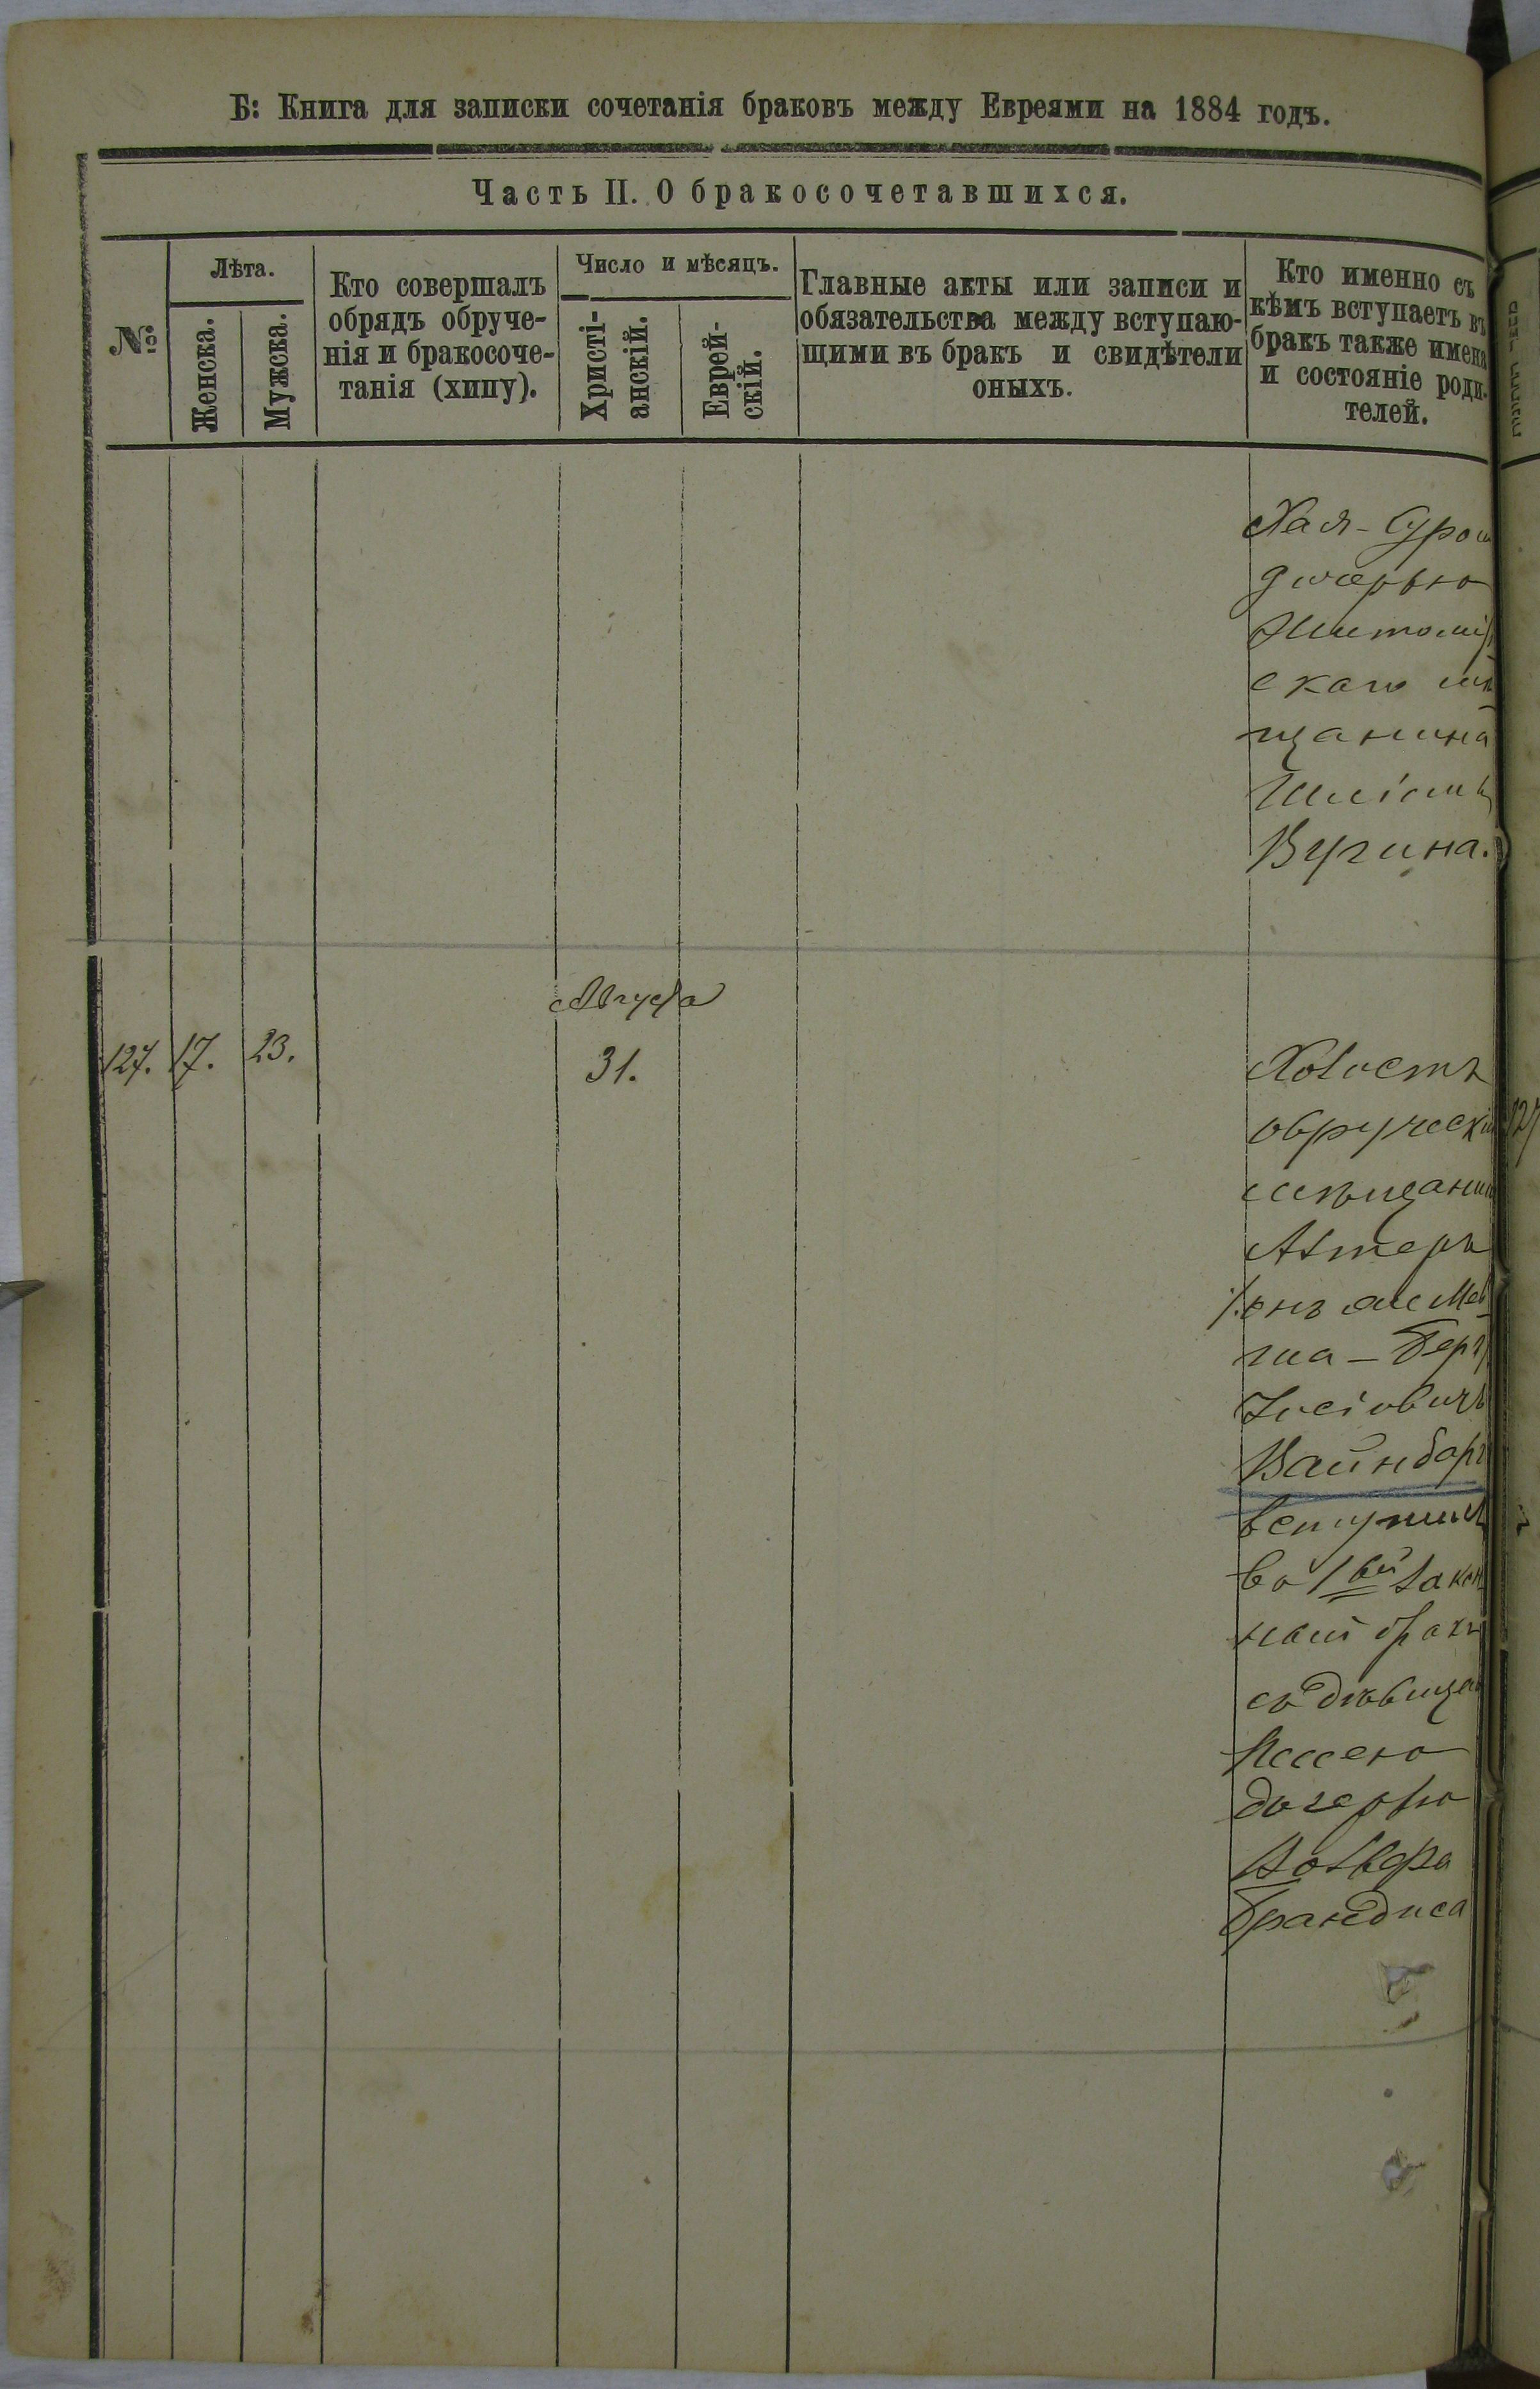 Б: Книга для записки сочетанія браковъ между Евреями на 1884 годъ.
Часть II. О бракосочетавшихся.
№
Лѣта.
Женска.
Мужска.
Кто совершалъ
обрядъ обруче-
нія и бракосоче-
танія (хипу).
Число и мѣсяцъ.
Христі-
анскій.
Еврей-
скій.
Главные акты или записи и
обязательства между вступаю-
щими въ бракъ и свидѣтели
оныхъ.
Кто именно съ
кѣмъ вступаетъ въ
бракъ также имена
и состояніе роди-
телей.
Хая-Сурою
дочерью
Житомір
скаго мѣ
щанина
Вугина.
Августа
127. 17. 23. 31.
Холостъ
овручскій
мѣщанинъ
Алтеръ
онъ же
Берг
Іосіовичъ
Вайнбарг
вступилъ
во 1вый закон
ный бракъ
съ дѣвицею
Песею
дочерью
Вольфа
Брандиса